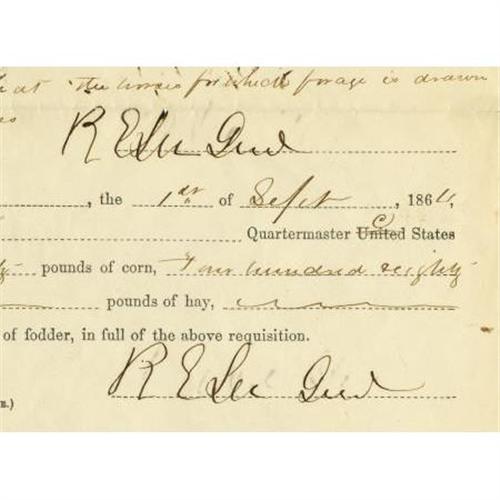 that the horses for which forage is drawn
R E Lee Genl
, the 1st of Sept , 1864,
Quartermaster United States C
pounds of corn, Four hundred eighty
pounds of hay,
of fodder, in full of the above requisition.
R E Lee Genl